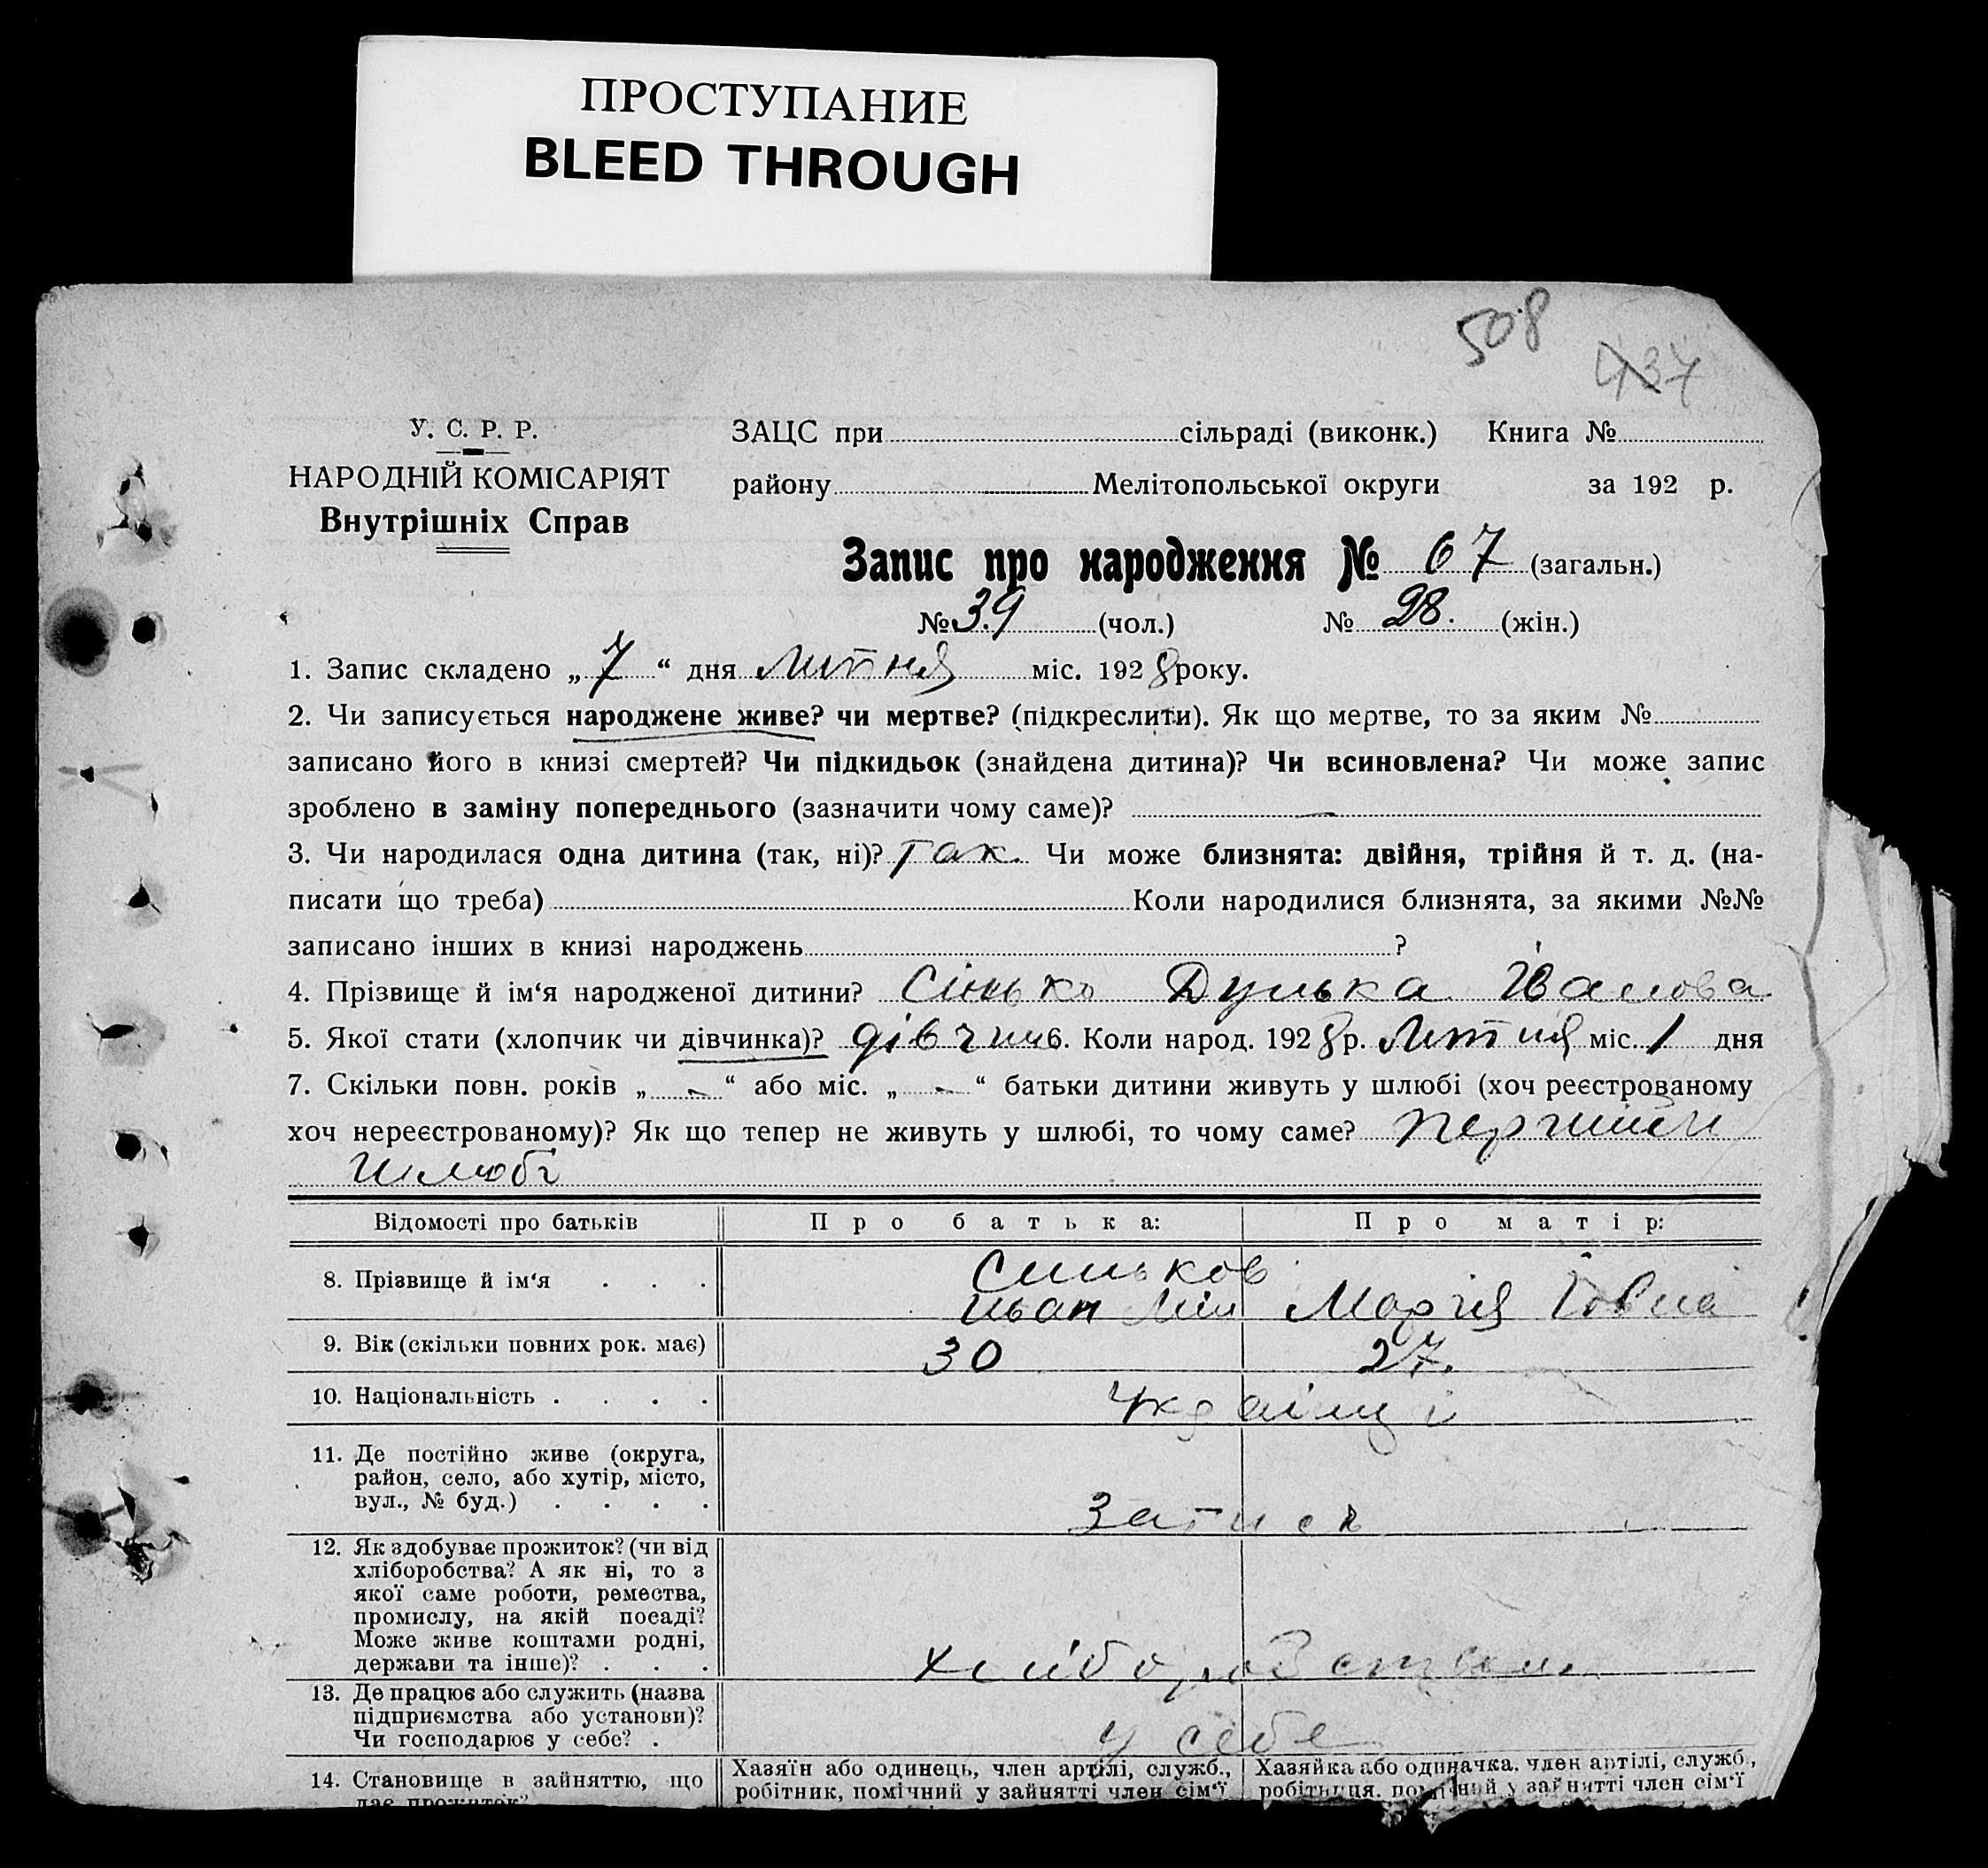 ПРОСТУПАНИЕ
BLEED THROUGH
508
437
У. С. Р. Р.
НАРОДНІЙ КОМІСАРІЯТ
Внутрішніх Справ
ЗАЦС при сільраді (виконк.) Книга №
району Мелітопольської округи за 192 р.
Запис про народження № 67 (загальн.)
№ 39 (чол.) № 28. (жін.)
1. Запис складено „ 7 “ дня Литня міс. 1928 року.
2. Чи записується народжене живе? чи мертве? (підкреслити). Як що мертве, то за яким №
записано його в книзі смертей? Чи підкидьок (знайдена дитина)? Чи всиновлена? Чи може запис
зроблено в заміну попереднього (зазначити чому саме)? —
3. Чи народилася одна дитина (так, ні)? так. Чи може близнята: двійня, трійня й т. д. (на-
писати що треба) Коли народилися близнята, за якими №№
записано інших в книзі народжень ?
4. Прізвище й ім‘я народженої дитини? Сінько Дунька Іванова
5. Якої стати (хлопчик чи дівчинка)? дівчин 6. Коли народ. 1928 р. Литня міс. 1 дня
7. Скільки повн. років „ - “ або міс. „ - “ батьки дитини живуть у шлюбі (хоч реєстрованому
хоч нереєстрованому)? Як що тепер не живуть у шлюбі, то чому саме?
шлюбі
Відомості про батьків Про батька: Про матір:
8. Прізвище й ім‘я . . . Синьков
Иван Марія
9. Вік (скільки повних рок. має) 30 27.
10. Національність . . . . Українці
11. Де постійно живе (округа,
район, село, або хутір, місто,
вул., № буд.) . . . .
12. Як здобуває прожиток? (чи від
хліборобства? А як ні, то з
якої саме роботи, ремества,
промислу, на якій посаді?
Може живе коштами родні,
держави та інше)? . . . хліборобством
13. Де працює або служить (назва
підприємства або установи)?
Чи господарює у себе? . у себе
14. Становище в зайняттю, що
дає прожиток?
Хазяїн або одинець, член артілі, служб.,
робітник, помічний у зайнятті член сім‘ї
Хазяйка або одиначка, член артілі, служб.,
робітниця, помічний у зайнятті член сім‘ї